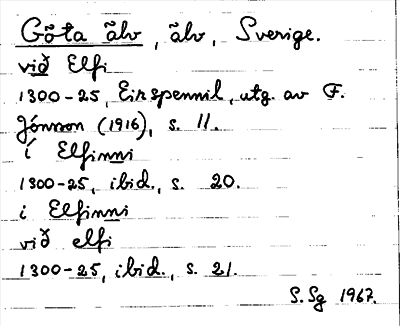 Göta älv, älv, Sverige.
við Elfi
1300-25, Eirspennil, utg. av F.
Jónsson (1916), s. 11.
í Elfinni
1300-25, ibid., s. 20.
i Elfinni
við elfi
1300-25, ibid., s. 21.
S.Sg 1967.